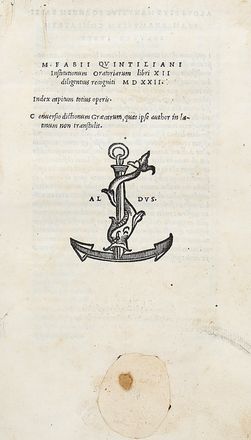 M. FABII QVINTILIANI
Institutionum Oratoriarum libri XII
diligentius recogniti MDXXII.
Index capitum totius operis.
Conuersio dictionum Græcarum, quas ipse author in la
tinum non transtulit.
AL DVS.